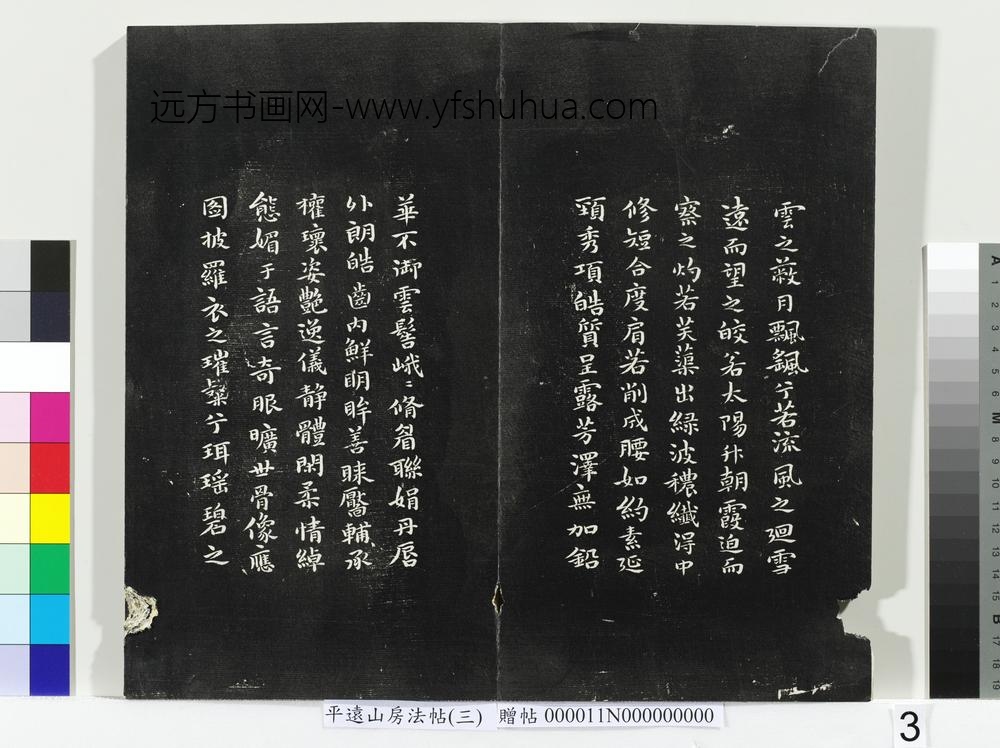 远方书画网-www.yfshuhua.com
雲之蔽月飄颻兮若流風之迴雪
遠而望之皎若太陽升朝霞迫而
察之灼若芙蕖出綠波穠纖淂中
修短合度肩若削成腰如約素延
頸秀項皓質呈露芳澤無加鉛
華不御雲髻峨〻脩眉聯娟丹脣
外朗皓齒內鮮眀眸善睞靨輔承
權瓌姿艷逸儀静體閑柔情綽
態媚于語言奇服曠世骨像應
圖披羅衣之璀粲兮珥瑶碧之
平遠山房法帖(三) 贈帖 000011N000000000
3
A 1 2 3 4 5 6 M 8 9 10 11 12 13 14 15 B 17 18 19